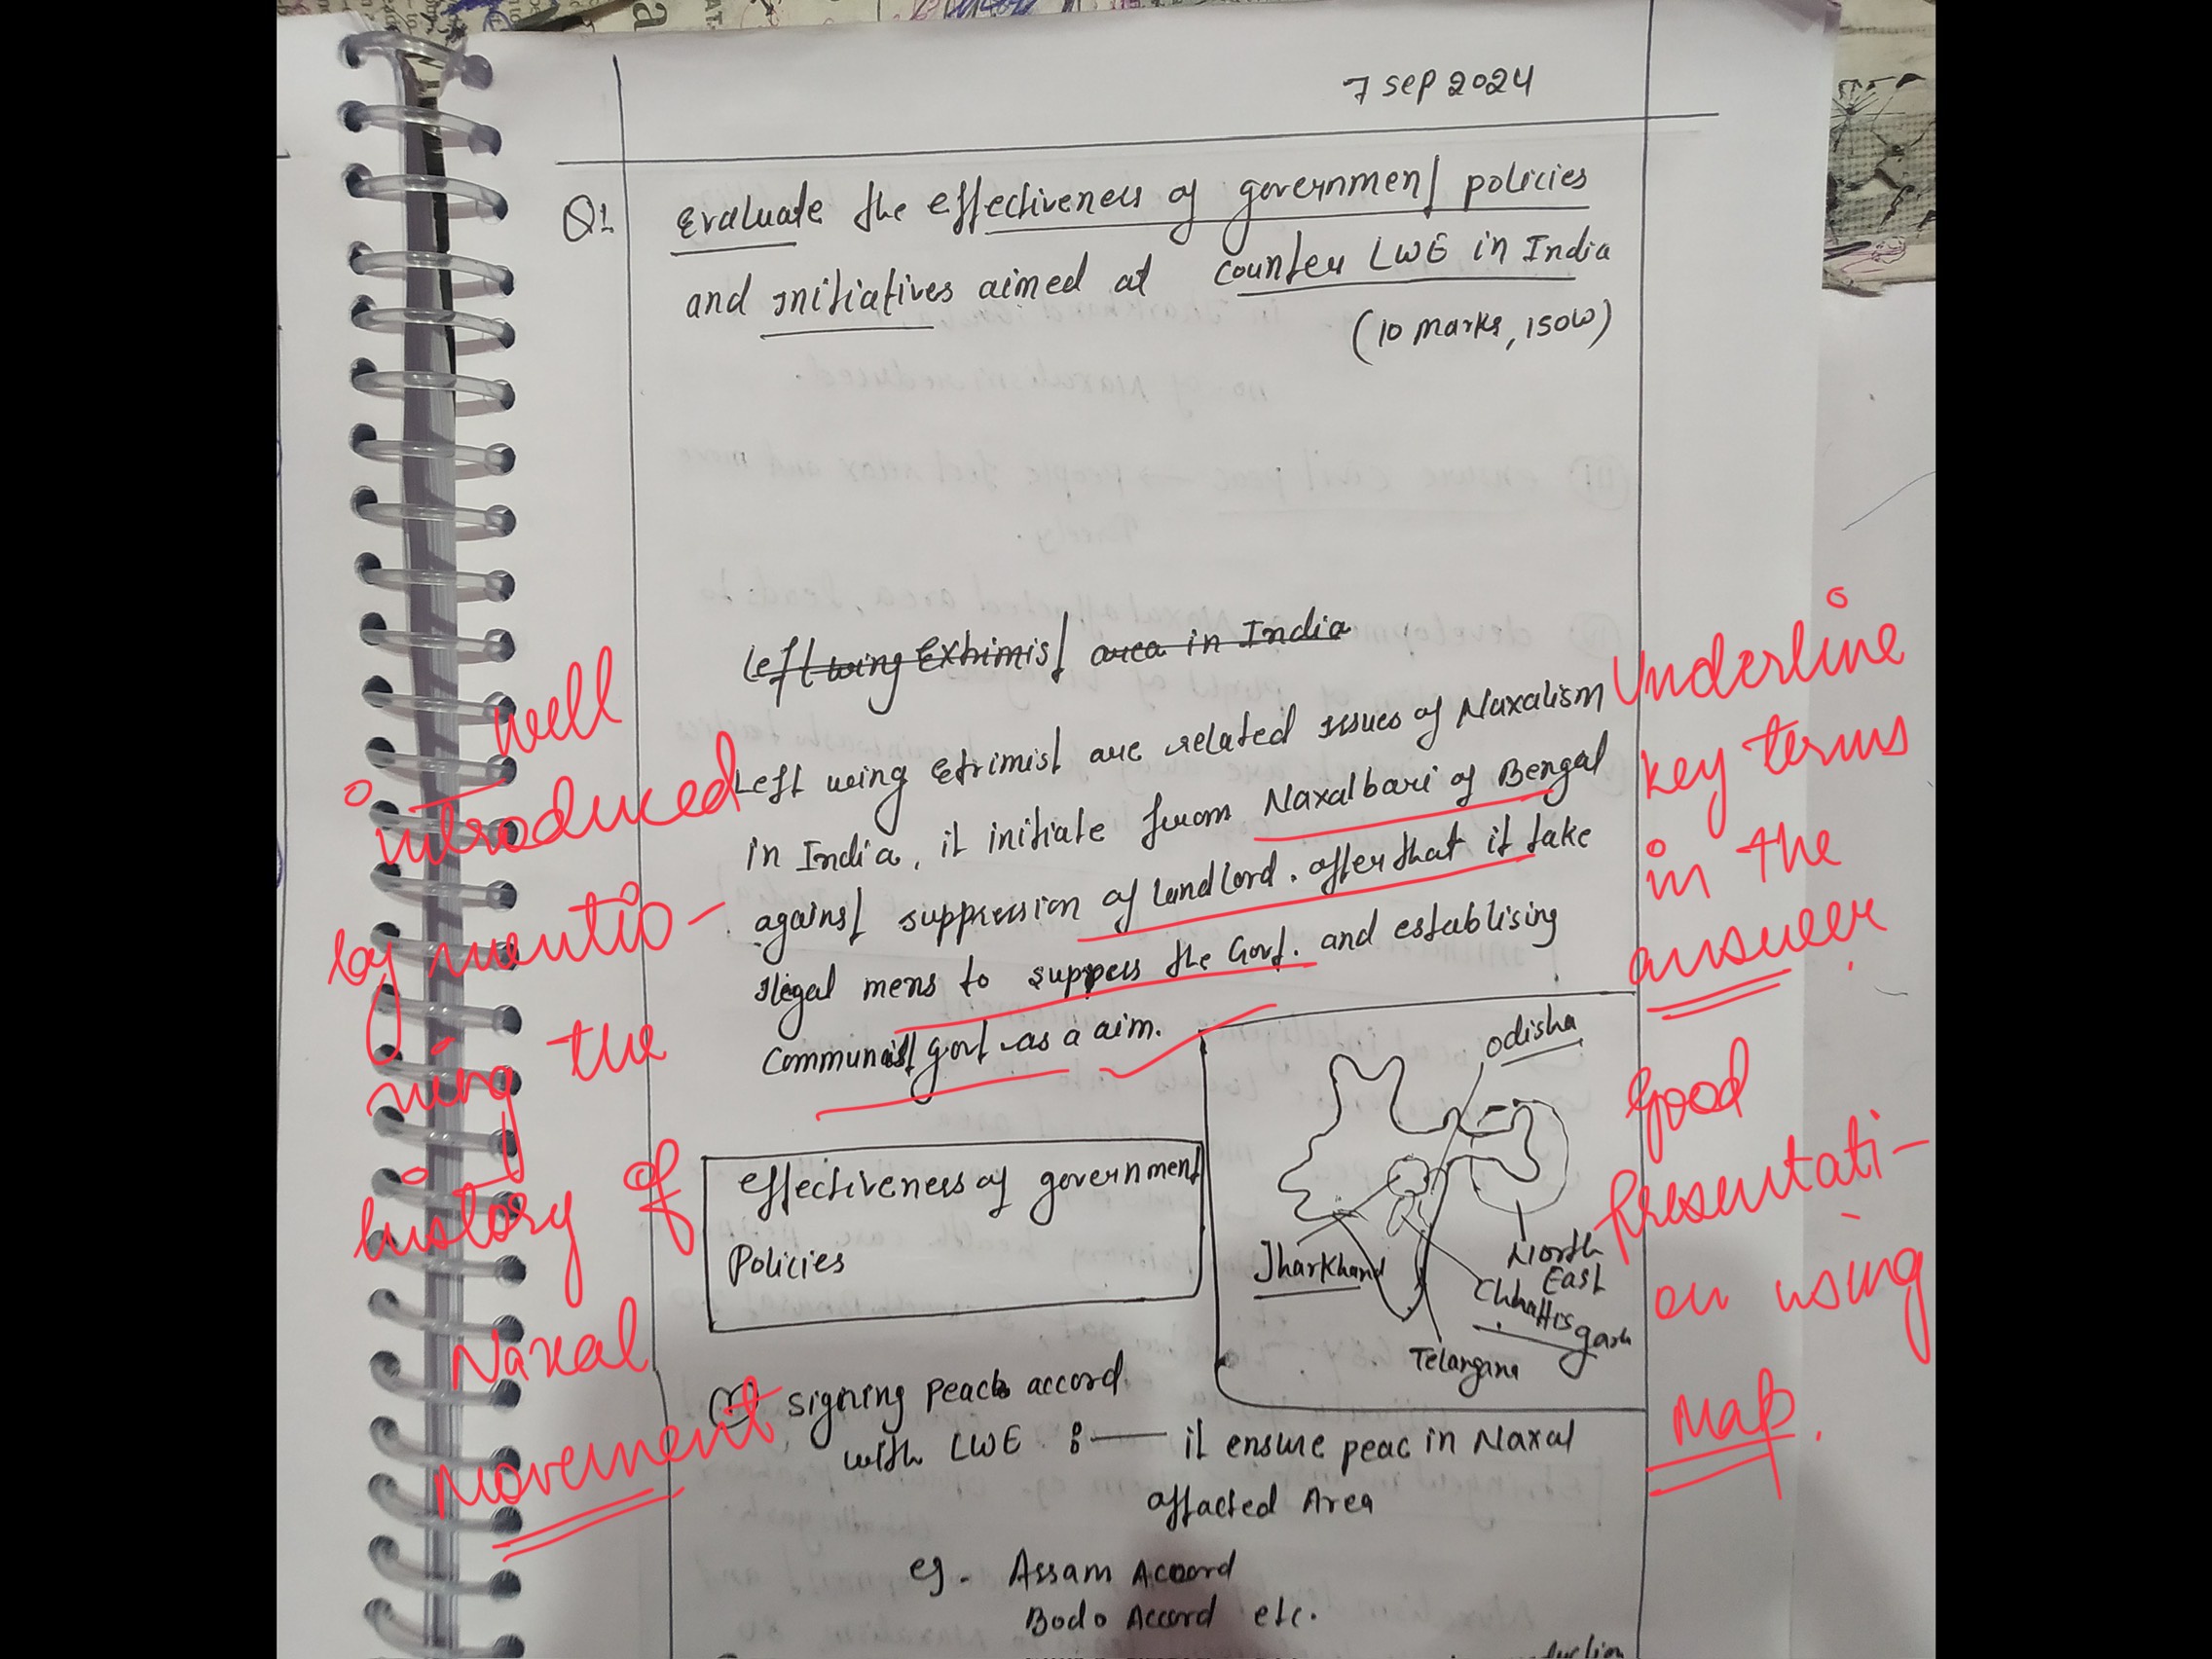 7 Sep 2024
Q1. Evaluate the effectiveness of government policies
and initiatives aimed at counter LWE in India
(10 marks, 150w)
Left wing Extrimist area in India
Left wing Etrimist are related issues of Naxalism
in India, it initiate from Naxalbari of Bengal
against suppression of landlord. after that it take
illegal mens to suppess the Govt. and establising
Communist govt as a aim.
Well
introduced
by mentio-
ning the
history of
Naxal
Movement
Underline
key terms
in the
answer
Good
Presentati-
on using
Map.
odisha
Jharkhand
North
East
Chhattisgarh
Telangana
Effectiveness of government
Policies
(I) signing Peace accord
with LWE :- it ensure peac in Naxal
affacted Area
eg. Assam Accord
Bodo Accord etc.